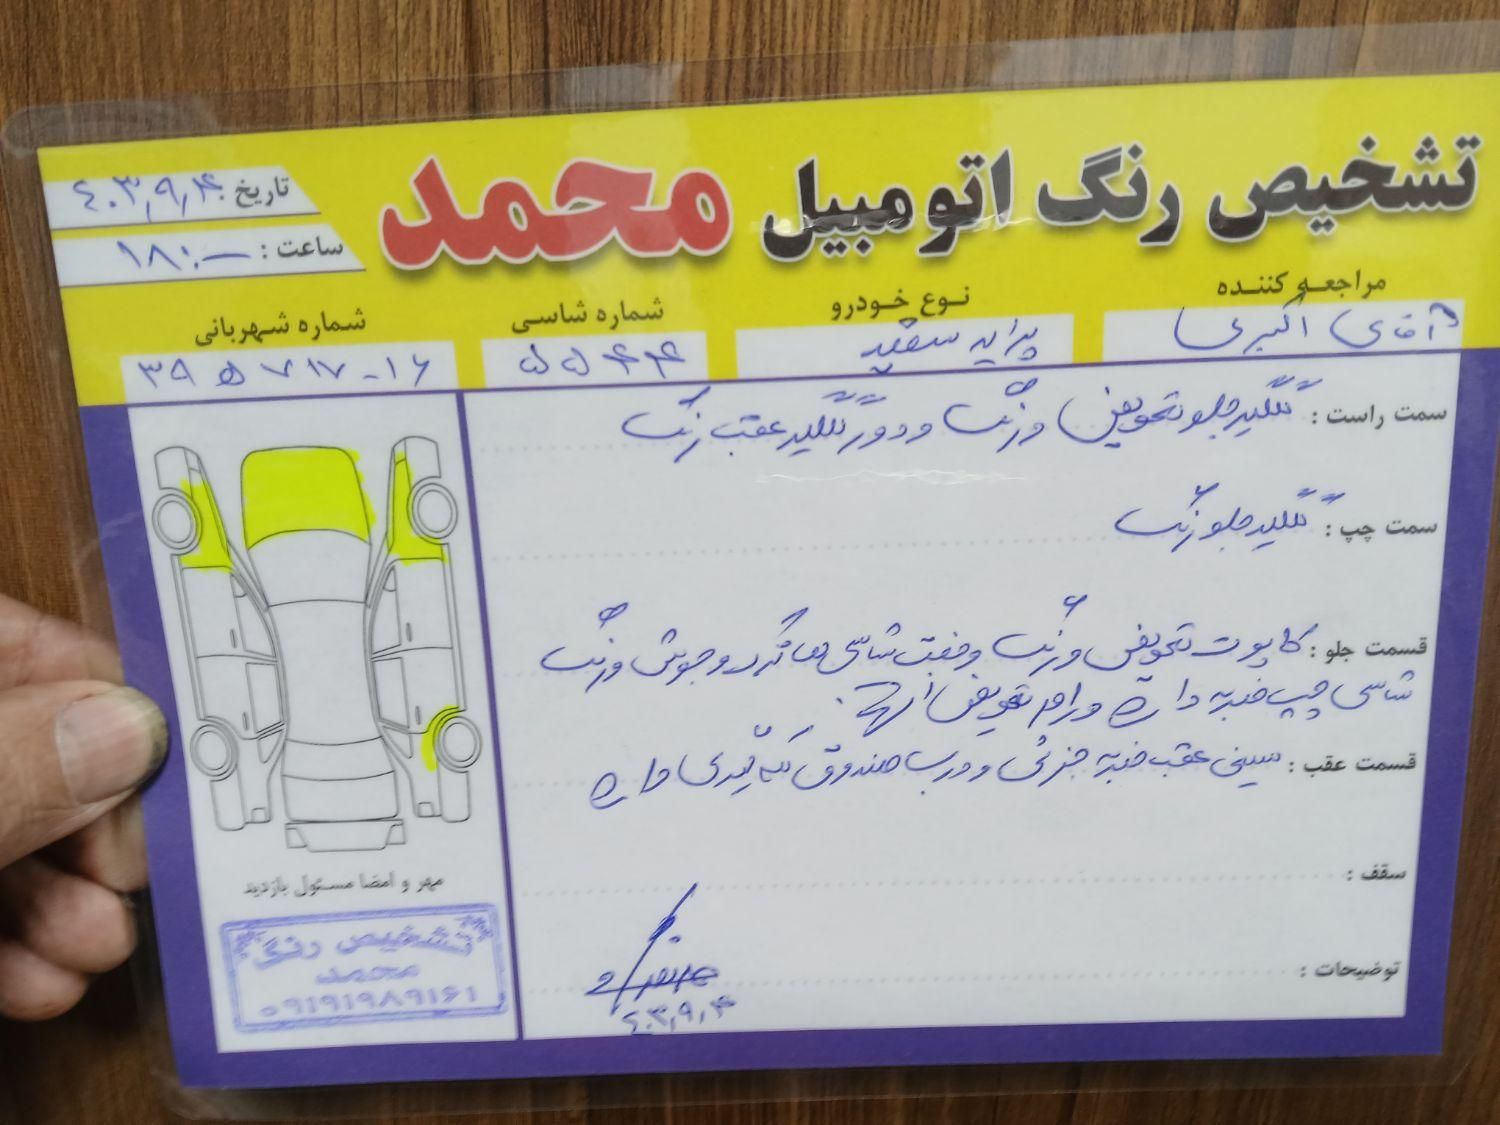 تشخیص رنگ اتومبیل محمد
تاریخ ۴۰۳٫۹٫۴
ساعت : ۱۸:—
مراجعه کننده
آقای اکبری
نوع خودرو
پراید سفید
شماره شاسی
۵۵۴۴
شماره شهربانی
۳۹۵۷۱۷-۱۶
سمت راست : گلگیر جلو تعویض و رنگ و دور گلگیر عقب رنگ
سمت چپ : گلگیر جلو رنگ
قسمت جلو : کاپوت تعویض و رنگ و جفت شاسی ها گرد و جوش و رنگ
شاسی چپ ضربه دارد و رام تعویض است.
قسمت عقب : سینی عقب ضربه جزئی و درب صندوق لکه گیری دارد
سقف :
توضیحات :
۴۰۳٫۹٫۴
مهر و امضا مسئول بازدید
تشخیص رنگ
محمد
۰۹۱۹۱۹۸۹۱۶۱